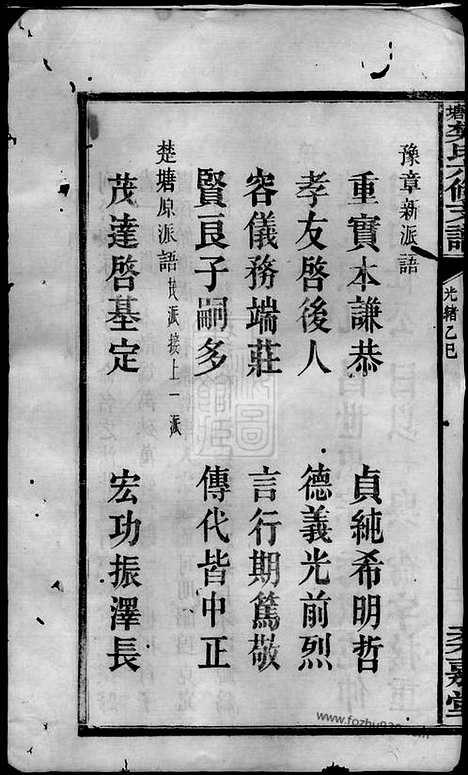 塘
氏六修支譜
光緒乙巳
嘉堂
豫章新派語
重寶本謙恭 貞純希明哲
孝友啓後人 德義光前烈
容儀務端莊 言行期篤敬
賢良子嗣多 傳代皆中正
楚塘原派語 派接上一派
茂達啓基定 宏功振澤長